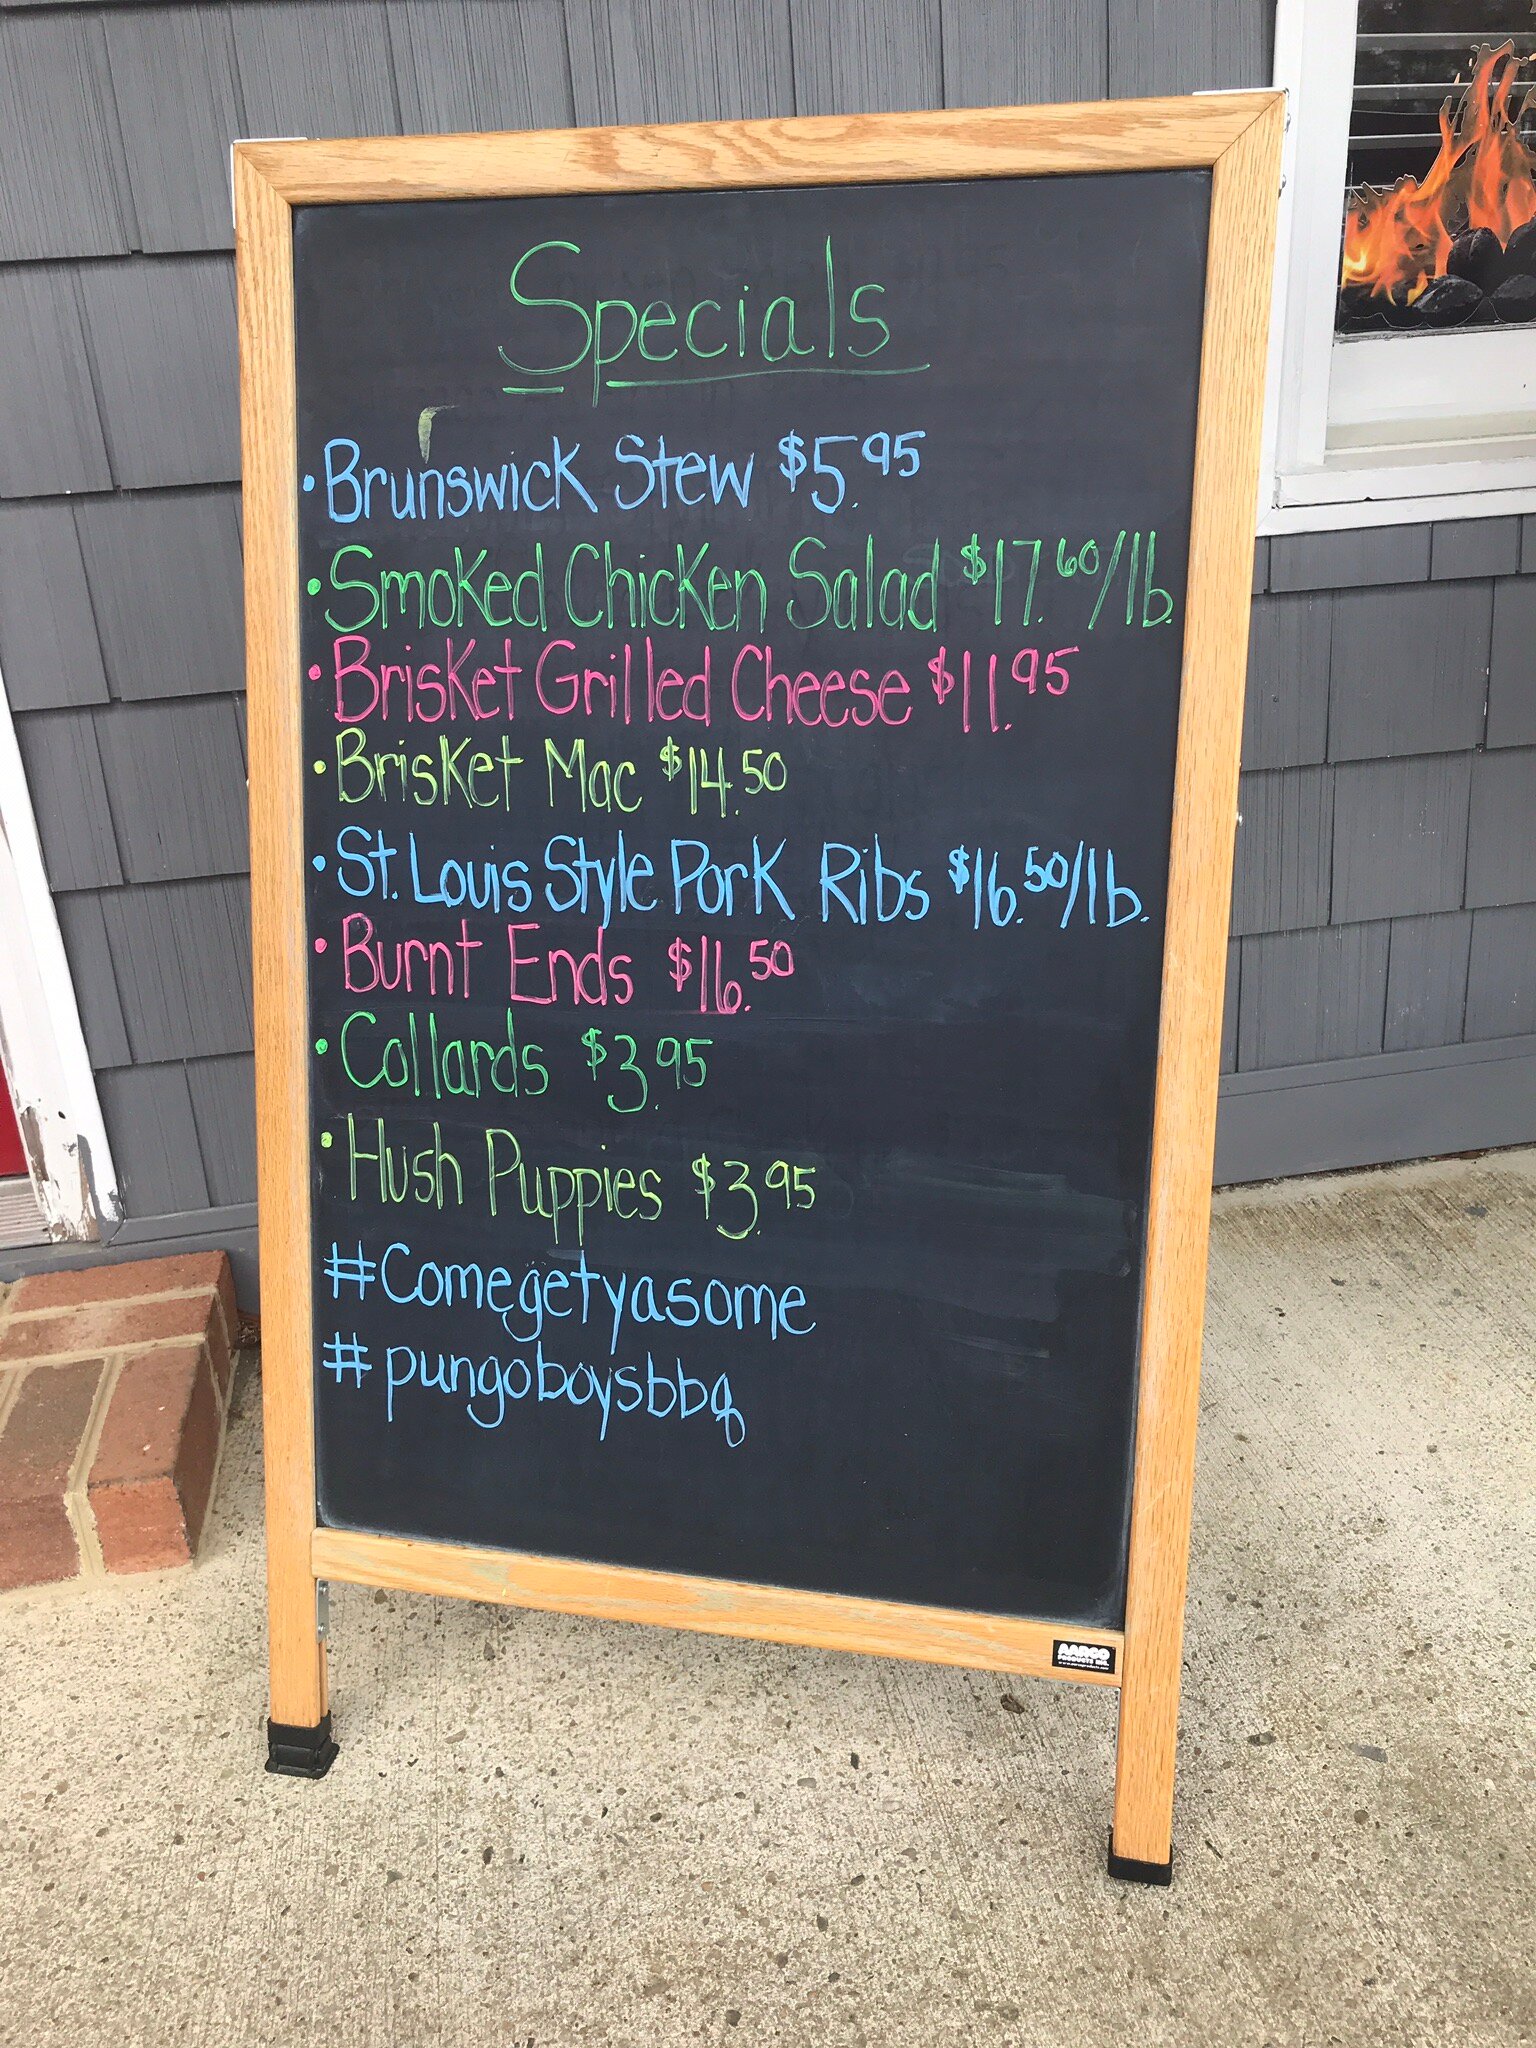 Specials
• Brunswick Stew $5.95
• Smoked Chicken Salad $17.60/lb.
• Brisket Grilled Cheese $11.95
• Brisket Mac $14.50
• St. Louis Style Pork Ribs $16.50/lb.
• Burnt Ends $16.50
• Collards $3.95
• Hush Puppies $3.95
#Comegetyasome
#pungoboysbbq
AARCO
PRODUCTS INC.